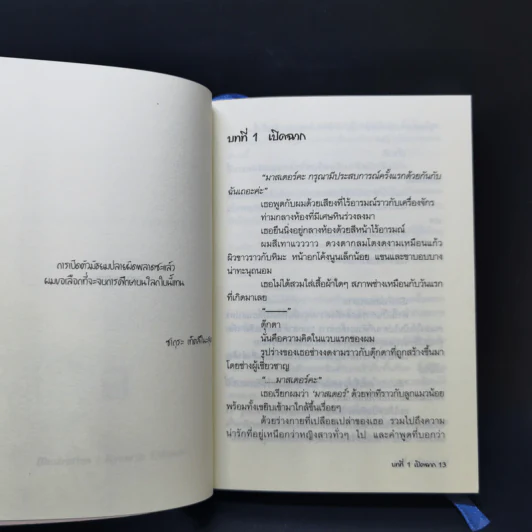 การเปิดตัวมัธยมปลายผิดพลาดซะแล้ว
ผมขอเลือกที่จะจบการศึกษาบนโลกใบนี้แทน
ซากุระ
บทที่ 1 เปิดฉาก
"มาสเตอร์คะ กรุณามีประสบการณ์ครั้งแรกด้วยกันกับ
ฉันเถอะค่ะ"
เธอพูดกับผมด้วยเสียงที่ไร้อารมณ์ราวกับเครื่องจักร
ท่ามกลางห้องที่มีเศษหินร่วงลงมา
เธอยืนนิ่งอยู่กลางห้องด้วยสีหน้าไร้อารมณ์
ผมสีเทาแวววาว ดวงตากลมโตงดงามเหมือนแก้ว
ผิวขาวราวกับหิมะ หน้าอกโค้งนูนเล็กน้อย แขนและขาบอบบาง
น่าทะนุถนอม
เธอไม่ได้สวมใส่เสื้อผ้าใดๆ สภาพช่างเหมือนกับวันแรก
ที่เกิดมาเลย
"———"
ตุ๊กตา
นั่นคือความคิดในแวบแรกของผม
รูปร่างของเธอช่างงดงามราวกับตุ๊กตาที่ถูกสร้างขึ้นมา
โดยช่างผู้เชี่ยวชาญ
"....มาสเตอร์คะ"
เธอเรียกผมว่า 'มาสเตอร์' ด้วยท่าทีราวกับลูกแมวน้อย
พร้อมทั้งเขยิบเข้ามาใกล้ขึ้นเรื่อยๆ
ด้วยร่างกายที่เปลือยเปล่าของเธอ รวมไปถึงความ
น่ารักที่อยู่เหนือกว่าหญิงสาวทั่วๆ ไป และคำพูดที่บอกว่า
บทที่ 1 เปิดฉาก 13